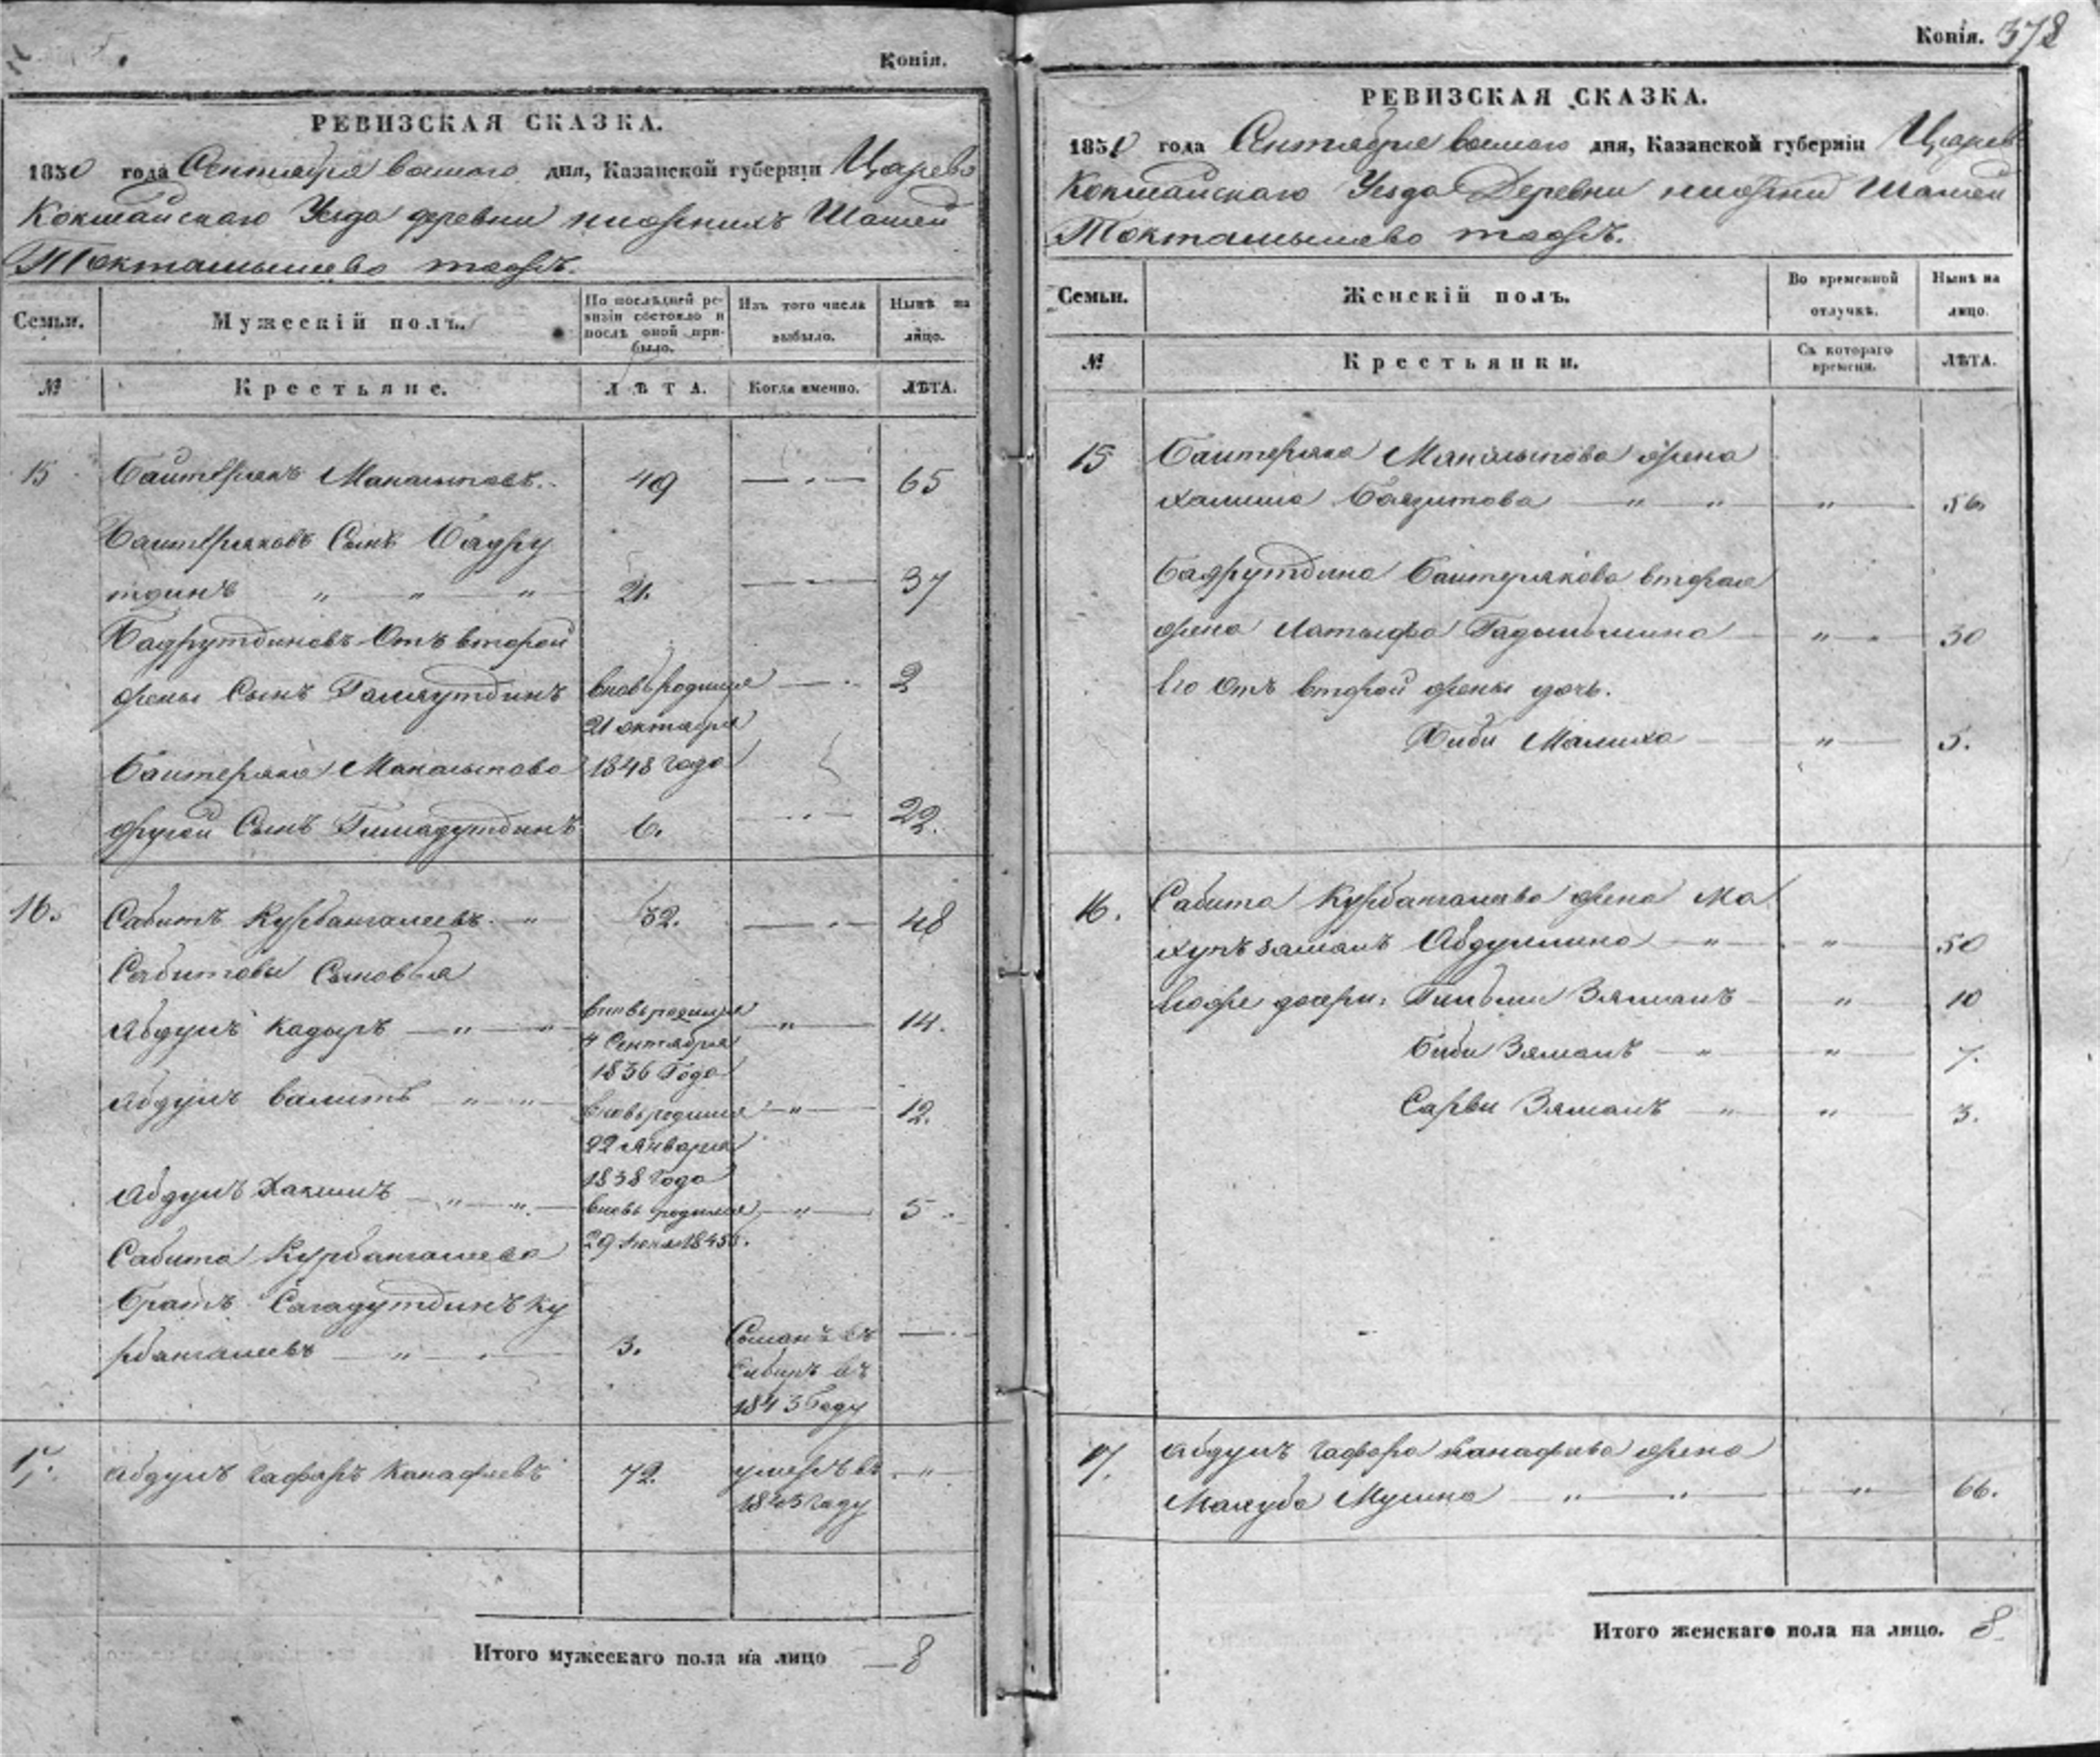 Копія.
РЕВИЗСКАЯ СКАЗКА.
1850 года Сентября восмаго дня, Казанской губерніи Царево
Кокшайскаго Уезда деревни нижнихъ Шашей
Токтамышево тожъ.
Семьи.
Мужескій полъ.
По послѣдней ревизіи состояло и послѣ оной прибыло.
Изъ того числа выбыло.
Нынѣ на лицо.
№
Крестьяне.
ЛѢТА.
Когда именно.
ЛѢТА.
15 Баитерякъ 49 65
Баитеряковъ Сынъ Бадру
тдинъ " " " 21. 37
Бадрутдиновъ Отъ второй
жены Сынъ вновь родился 2
21 октября
Баитеряка 1848 года
другой Сынъ Гимадутдинъ 6. 22.
16. Сабитъ Курбангалеевъ " 32. 48
Сабитовы Сыновья
Абдулъ Кадыръ " " вновь родился " 14.
4 Сентября
1836 Года
Абдулъ Валитъ " " вновь родился " 12.
22 Января
1838 года
Абдулъ Хакимъ " " вновь родился " 5
29 1845
Сабита Курбангалеева
братъ Сагадутдинъ Ку
рбангалеевъ " 3. Сосланъ въ
Сибирь въ
1843 Году
17. Абдулъ Гафаръ Канафеевъ 72. умеръ въ "
году
Итого мужескаго пола на лицо 8
Копія. 378
РЕВИЗСКАЯ СКАЗКА.
1850 года Сентября восмаго дня, Казанской губерніи Царево
Кокшайскаго Уезда Деревни нижни Шашей
Токтамышево тожъ.
Семьи.
Женскій полъ.
Во временной отлучкѣ.
Нынѣ на лицо.
№
Крестьянки.
Съ котораго времени.
ЛѢТА.
15 Баитеряка жена
Халима Баязитова " " " 56
Бадрутдина Баитерякова вторая
жена Латыфа " 30
Его Отъ второй жены дочь.
Биби Малиха " 5.
16. Сабита Курбангалеева жена Ма
Абдуллина " " 50
Ево же дочери: Зяманъ " 10
Биби Зяманъ " " 7.
Сарви Зяманъ " " 3.
17. Абдулъ Гафара Канафеева жена
Муслина " " " 66.
Итого женскаго пола на лицо. 8